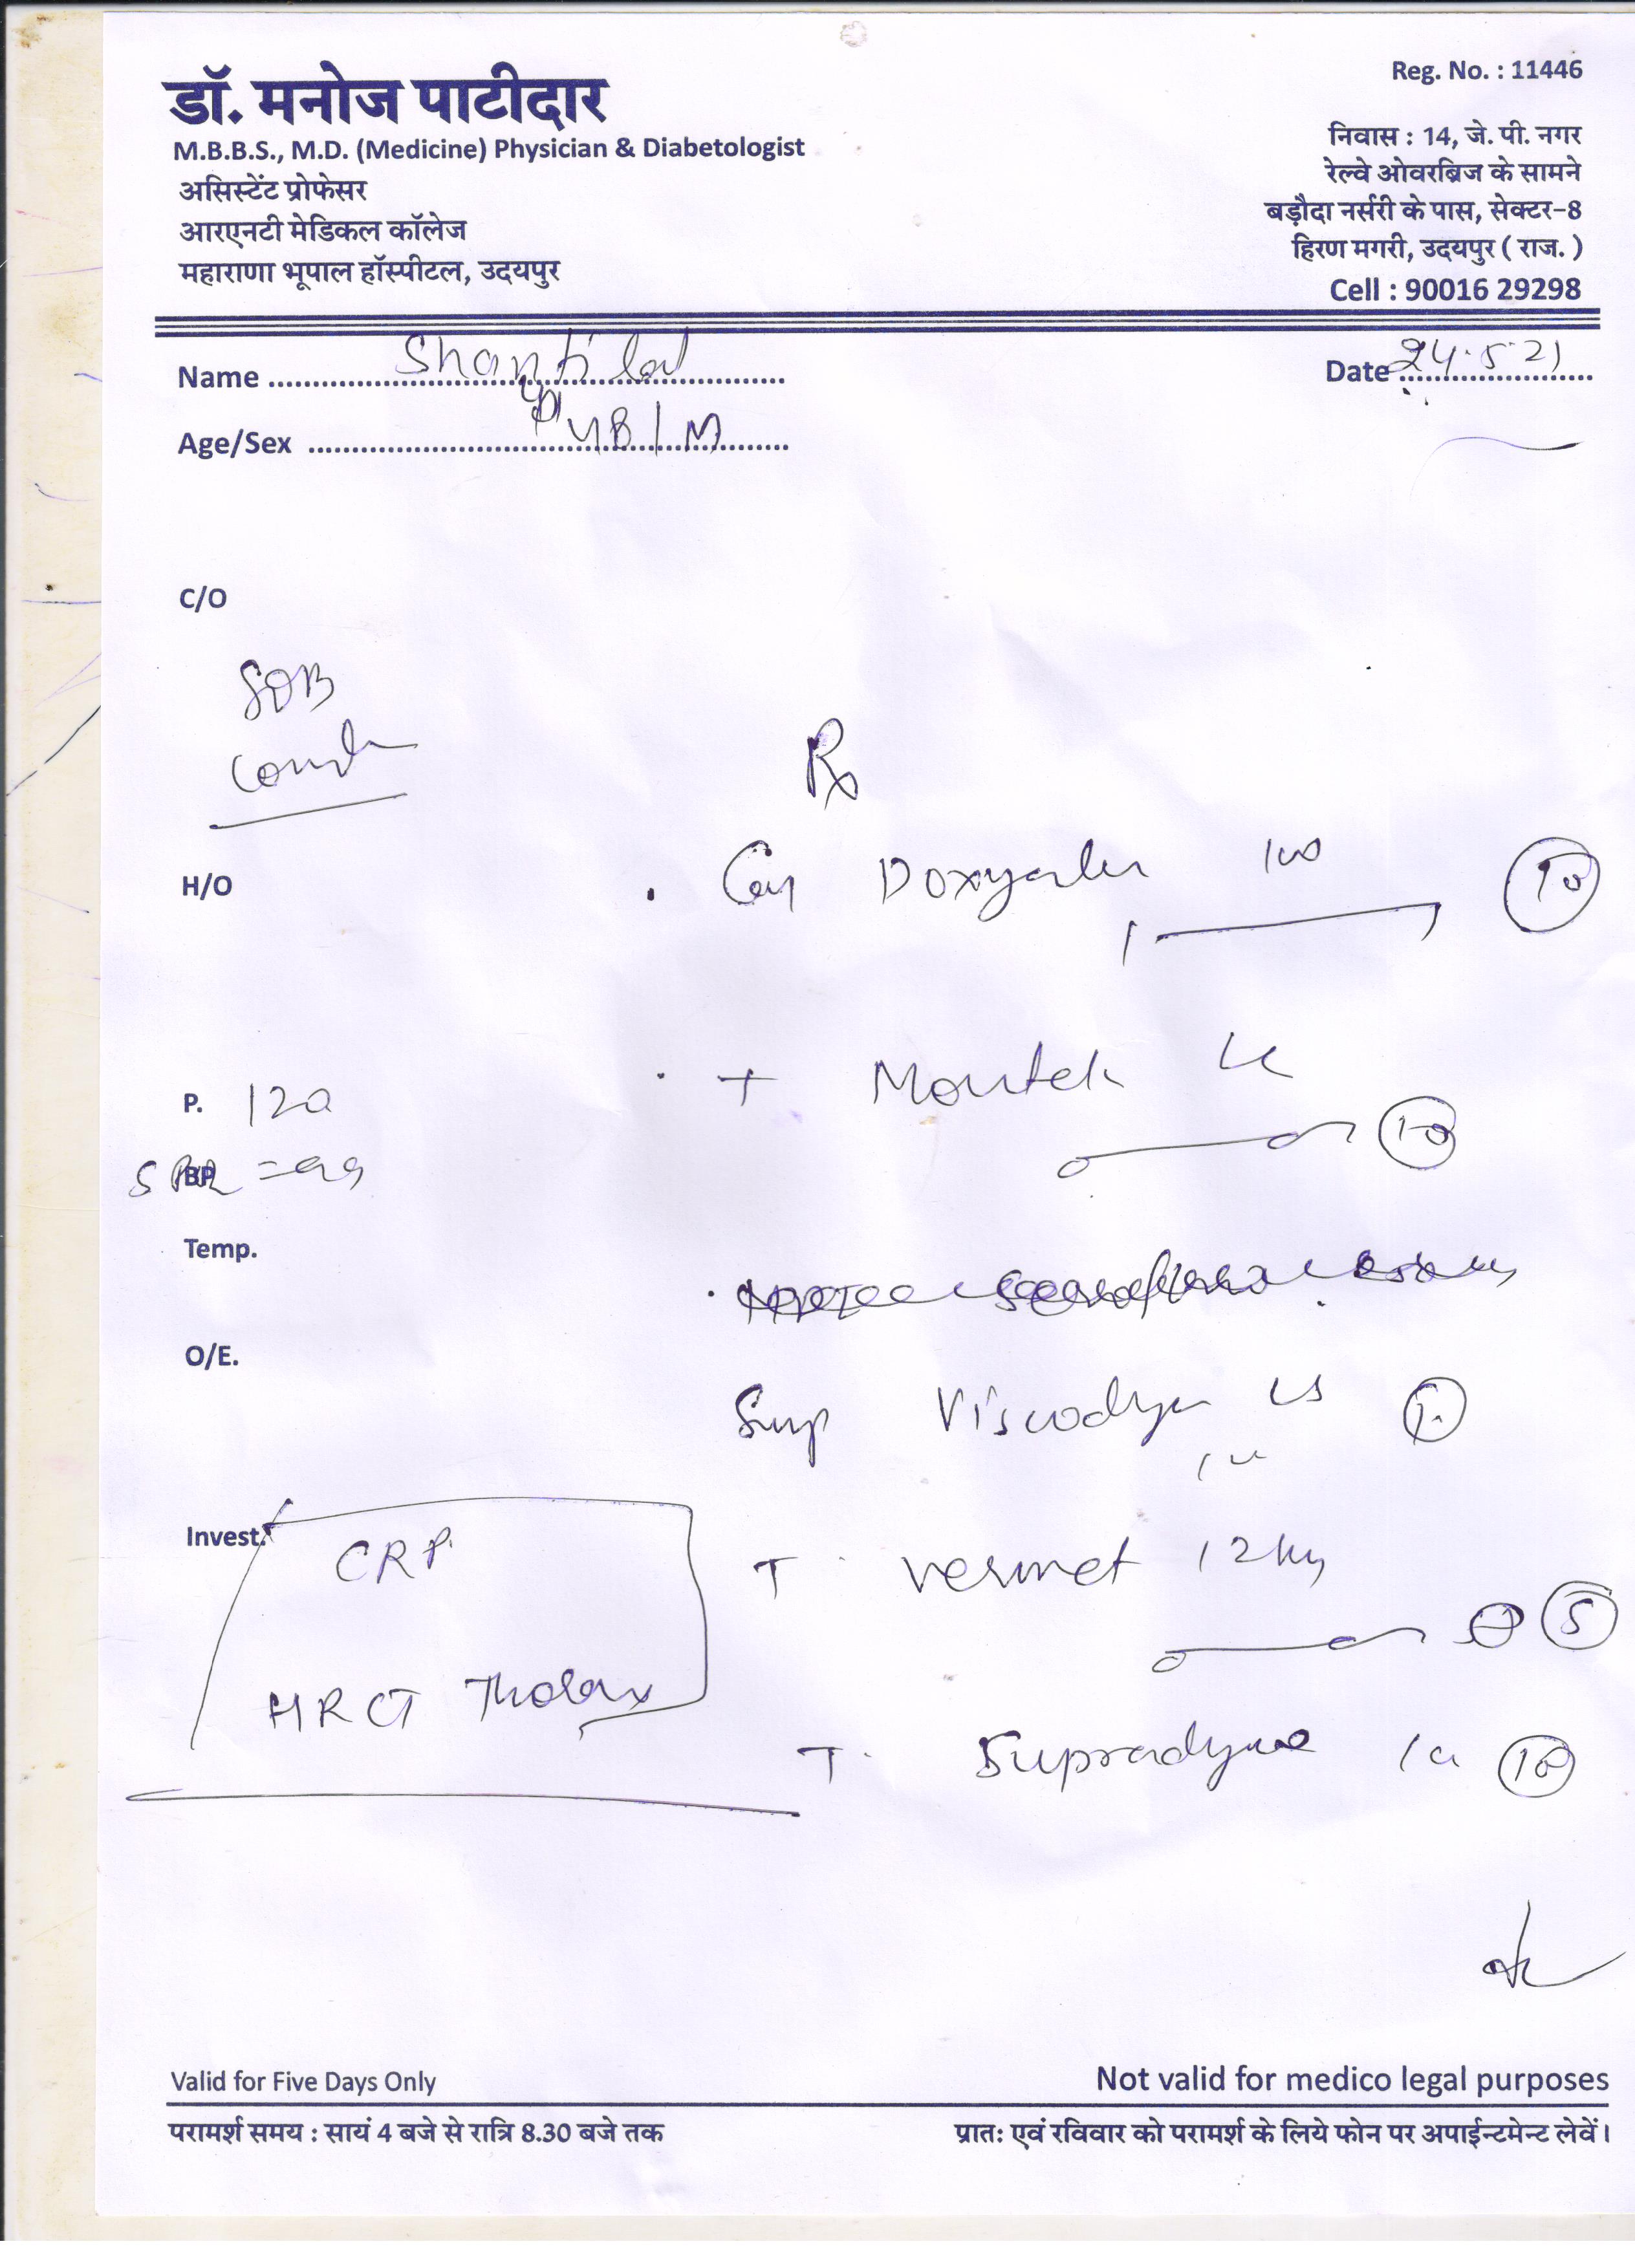 डॉ. मनोज पाटीदार
M.B.B.S., M.D. (Medicine) Physician & Diabetologist
असिस्टेंट प्रोफेसर
आरएनटी मेडिकल कॉलेज
महाराणा भूपाल हॉस्पीटल, उदयपुर
Reg. No. : 11446
निवास : 14, जे. पी. नगर
रेल्वे ओवरब्रिज के सामने
बड़ौदा नर्सरी के पास, सेक्टर-8
हिरण मगरी, उदयपुर ( राज. )
Cell : 90016 29298
Name Shanti lal
Date 24.5.21
Age/Sex 48/M
C/O
SOB
Rx
H/O
100 10
T Montek LC
10
P. 120
BP
Temp.
O/E.
Syp LS 1
Invest.
CRP
T. 12
5
HRCT Thorax
T. Supradyne 10
Valid for Five Days Only
Not valid for medico legal purposes
परामर्श समय : सायं 4 बजे से रात्रि 8.30 बजे तक
प्रातः एवं रविवार को परामर्श के लिये फोन पर अपाईन्टमेन्ट लेवें।